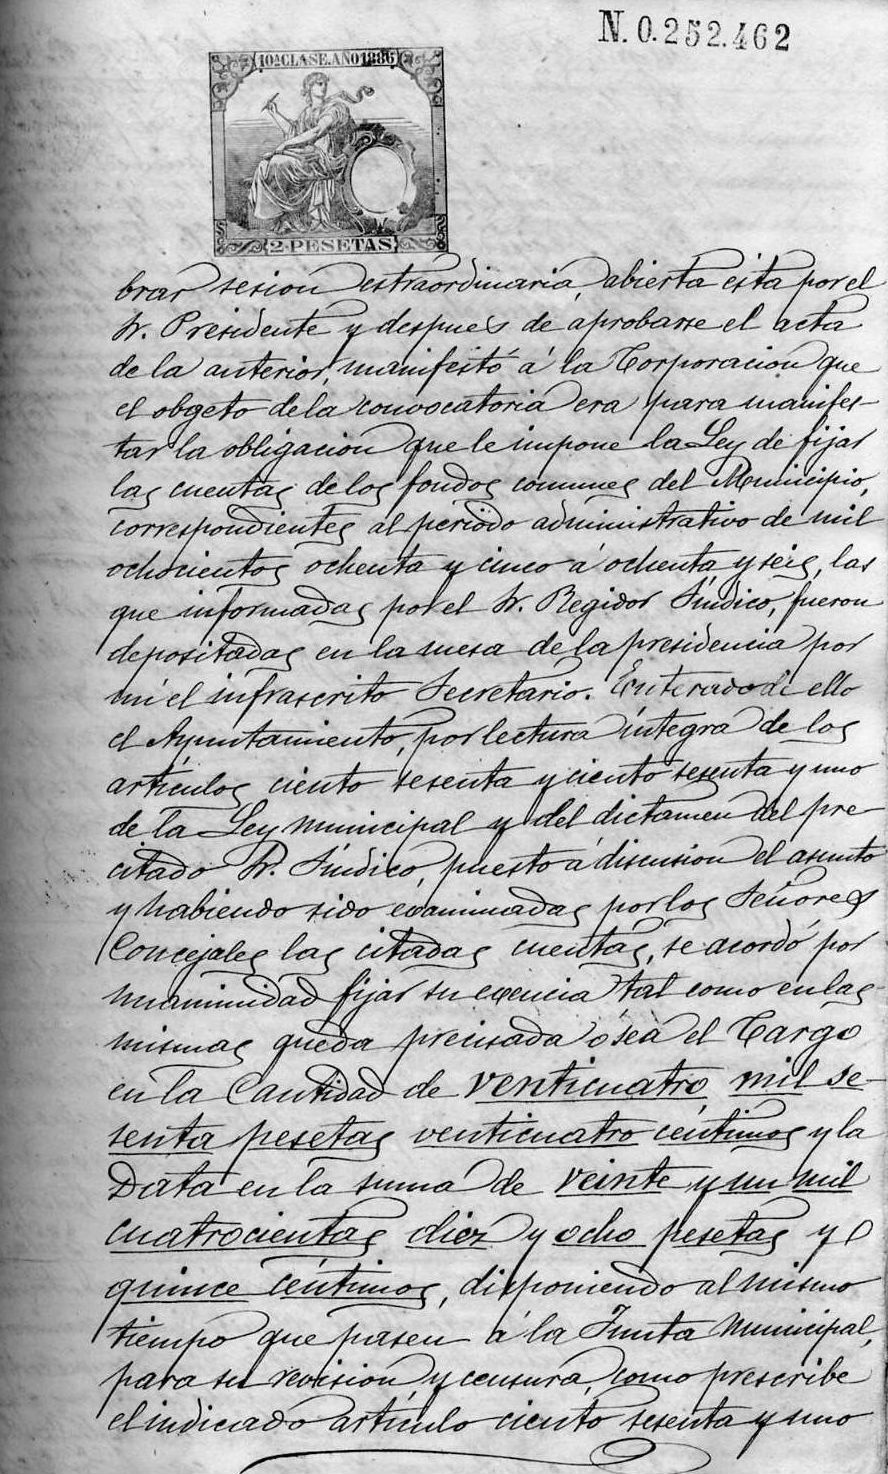 N.0.252.462
10ª CLASE. AÑO 1886
2 PESETAS
brar sesion estraordinaria, abierta esta por el
Sr. Presidente y despues de aprobarse el acta
de la anterior, manifestó á la Corporacion que
el obgeto de la convocatoria era para manifes-
tar la obligacion que le impone la Ley de fijar
las cuentas de los fondos comunes del Municipio,
correspondientes al periodo administrativo de mil
ochocientos ochenta y cinco á ochenta y seis, las
que informadas por el Sr. Regidor Síndico, fueron
depositadas en la mesa de la presidencia por
mi el infrascrito Secretario. Enterado de ello
el Ayuntamiento, por lectura íntegra de los
artículos ciento sesenta y ciento sesenta y uno
de la Ley Municipal y del dictamen del pre-
citado Sr. Síndico, puesto á discusion el asunto
y habiendo sido examinadas por los Señores
Concejales las citadas cuentas, se acordó por
unanimidad fijar su esencia tal como en las
mismas queda precisada ó sea el Cargo
en la Cantidad de venticuatro mil se-
senta pesetas venticuatro céntimos y la
Data en la suma de veinte y un mil
cuatrocientas diez y ocho pesetas y
quince céntimos, disponiendo al mismo
tiempo que pasen á la Junta Municipal,
para su revision y censura, como prescribe
el indicado artículo ciento sesenta y uno